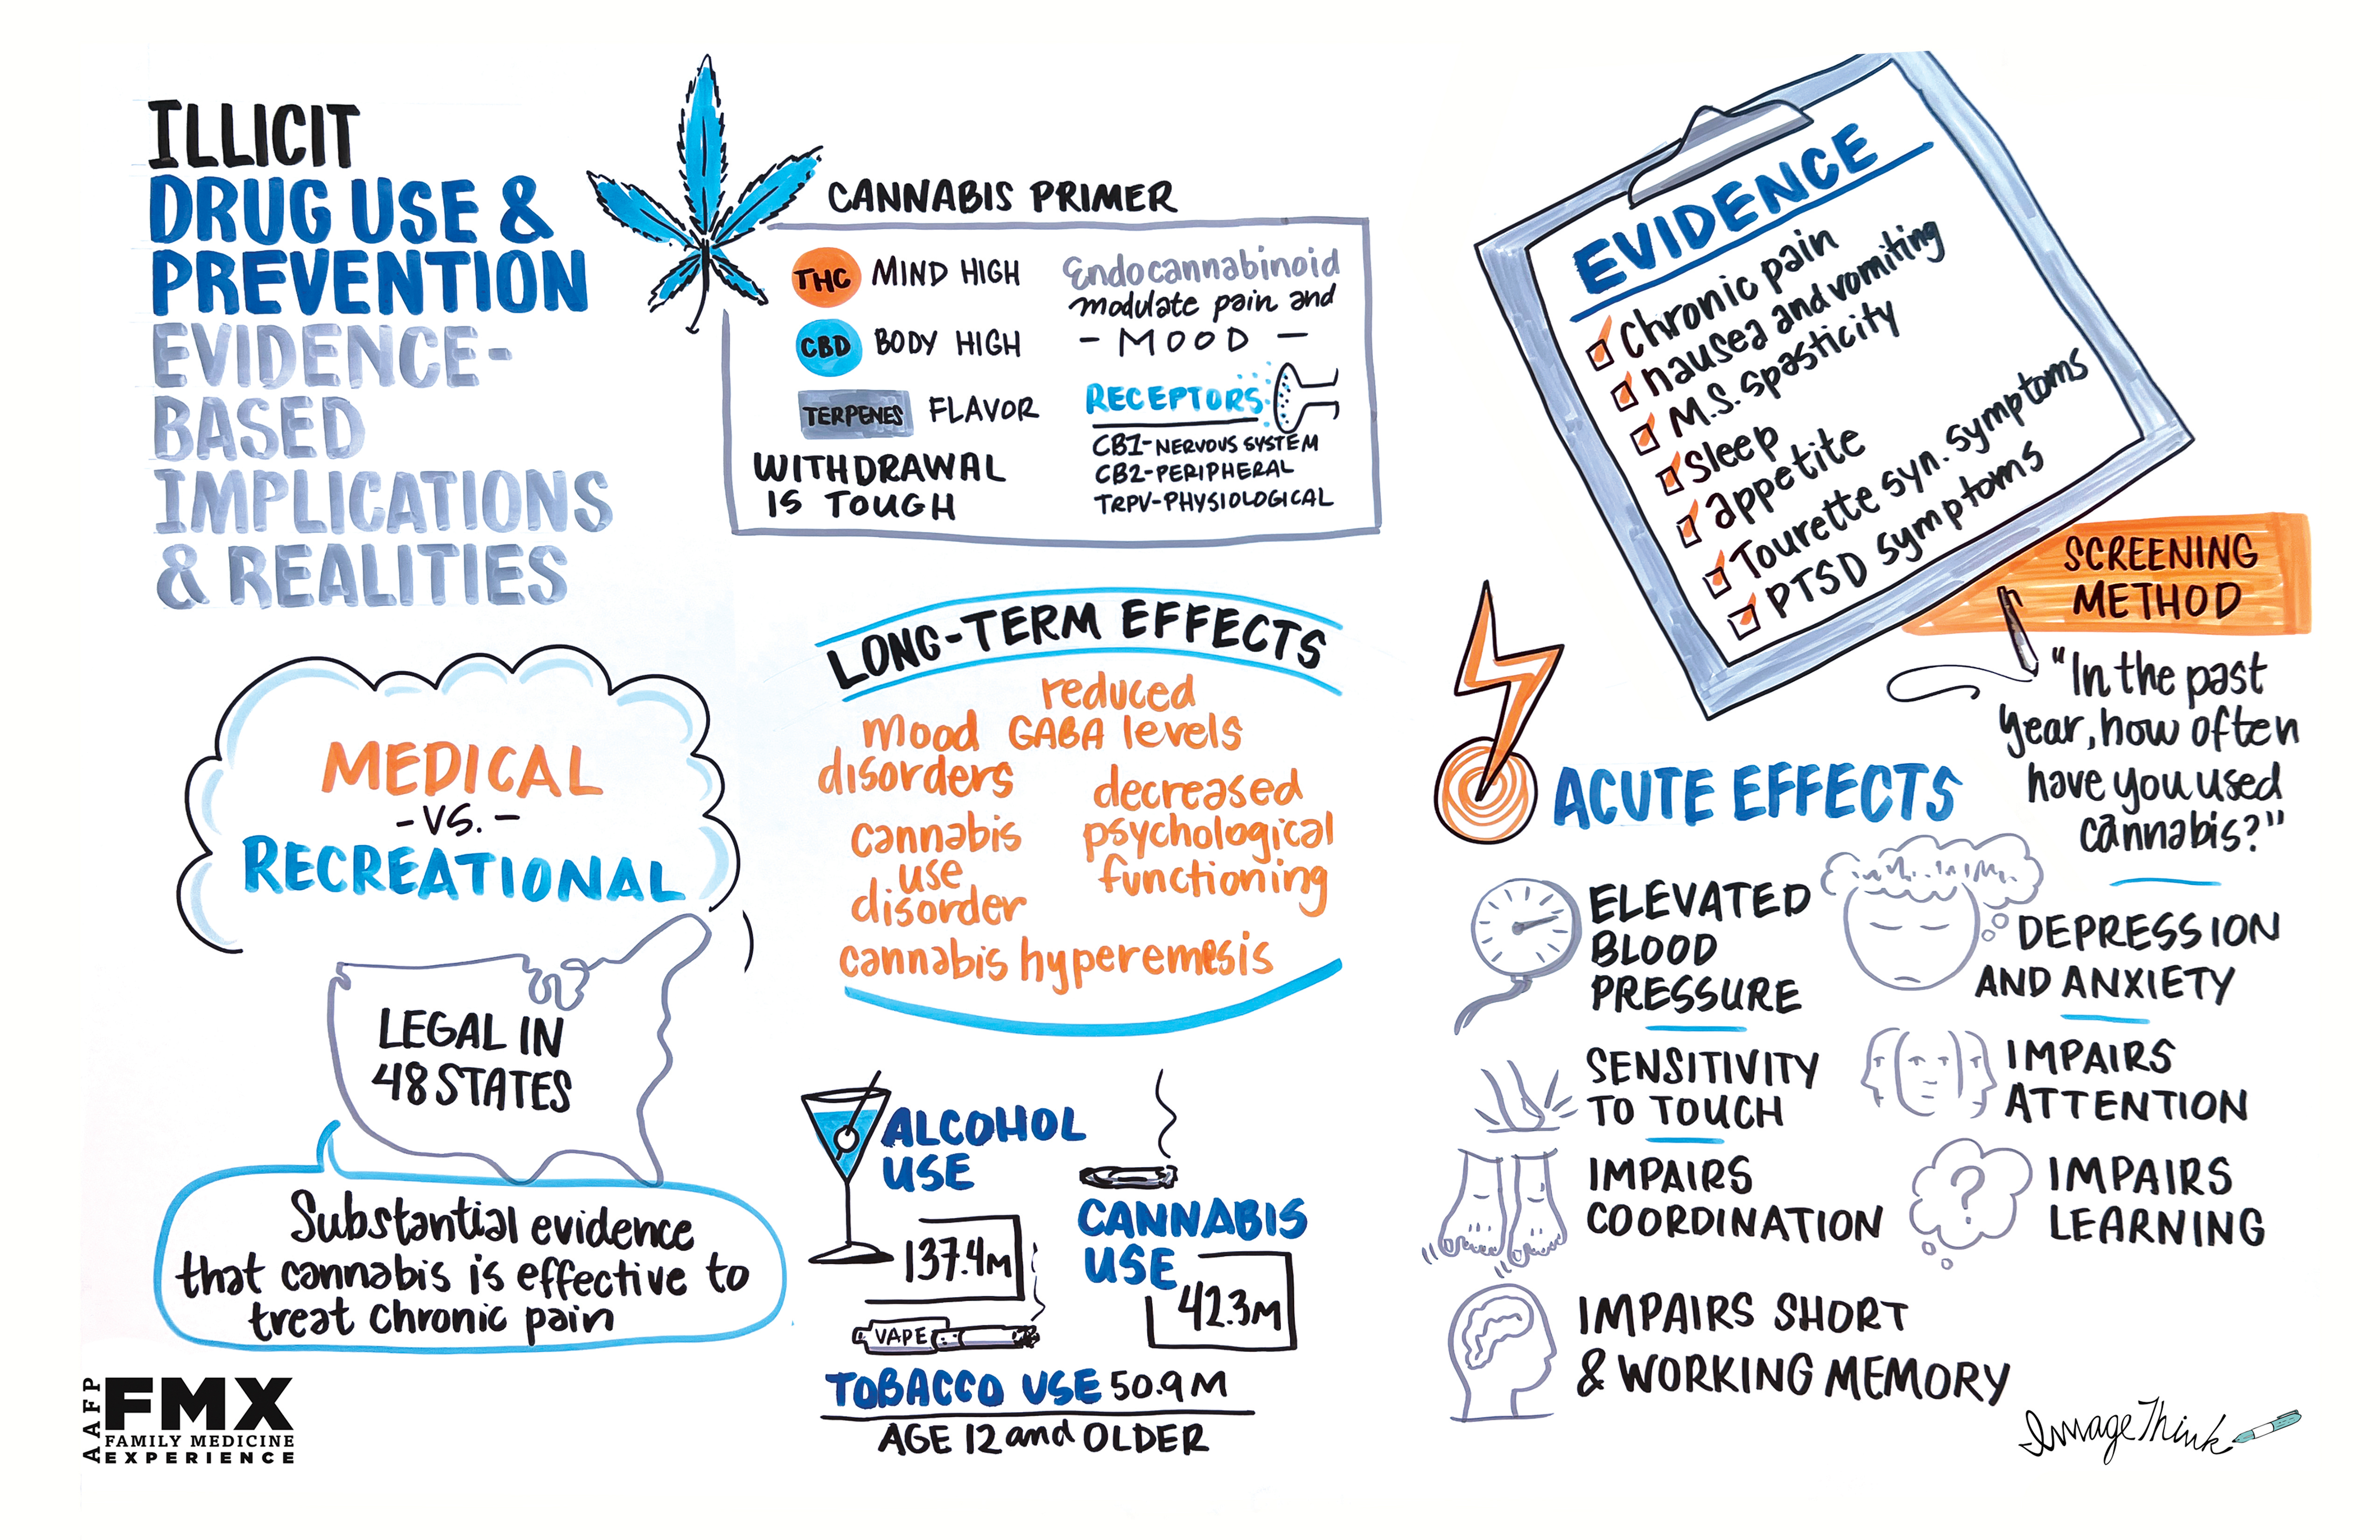 ILLICIT
DRUG USE &
PREVENTION
EVIDENCE-
BASED
IMPLICATIONS
& REALITIES
CANNABIS PRIMER
THC MIND HIGH
CBD BODY HIGH
TERPENES FLAVOR
WITHDRAWAL
IS TOUGH
Endocannabinoid
modulate pain and
- MOOD -
RECEPTORS
CB1-NERVOUS SYSTEM
CB2-PERIPHERAL
TRPV-PHYSIOLOGICAL
EVIDENCE
chronic pain
nausea and vomiting
M.S. spasticity
sleep
appetite
Tourette syn. symptoms
PTSD symptoms
SCREENING
METHOD
"In the past
year, how often
have you used
cannabis?"
MEDICAL
- VS. -
RECREATIONAL
LEGAL IN
48 STATES
Substantial evidence
that cannabis is effective to
treat chronic pain
LONG-TERM EFFECTS
reduced
GABA levels
mood
disorders
decreased
psychological
functioning
cannabis
use
disorder
cannabis hyperemesis
ALCOHOL
USE
137.4M
CANNABIS
USE
42.3M
VAPE
TOBACCO USE 50.9M
AGE 12 and OLDER
ACUTE EFFECTS
ELEVATED
BLOOD
PRESSURE
DEPRESSION
AND ANXIETY
SENSITIVITY
TO TOUCH
IMPAIRS
ATTENTION
IMPAIRS
COORDINATION
?
IMPAIRS
LEARNING
IMPAIRS SHORT
& WORKING MEMORY
AAFP
FMX
FAMILY MEDICINE
EXPERIENCE
ImageThink